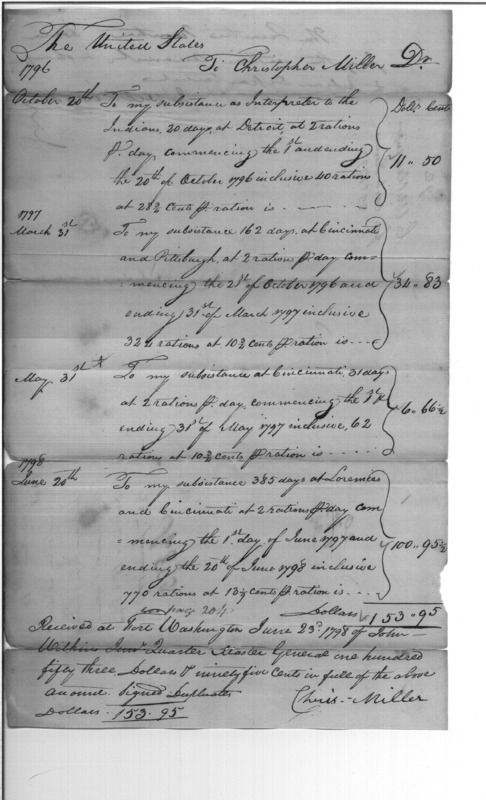 The United States
1796 To Christopher Miller Dr.
October 20th To my subsistance as Interpreter to the Dolls. Cents
Indians, 20 days at Detroit, at 2 rations
pr. day, commencing the 1st and ending 11 .. 50
the 20th of October 1796 inclusive 40 rations
at 28¾ Cents pr. ration is
1797
March 31st To my subsistance 162 days, at Cincinnati
and Pittsburgh, at 2 rations pr. day com=
=mencing the 21st of October 1796 and 34 .. 83
ending 31st of March 1797 inclusive
324 rations at 10¾ Cents pr. ration is ...
May 31st To my subsistance at Cincinnati, 31 days
at 2 rations pr. day, commencing the 1st & 6 .. 66½
ending 31st of May 1797 inclusive, 62
rations at 10¾ cents pr. ration is .....
1798
June 20th To my subsistance 385 days at Loremies
and Cincinnati at 2 rations pr. day com
=mencing the 1st day of June 1797 and 100 .. 95½
ending the 20th of June 1798 inclusive
770 rations at 13½ cents pr. ration is ...
page 204 Dollars 153 .. 95
Received at Fort Washington June 23d. 1798 of John
Wilkins Junr. Quarter Master General one hundred
fifty three Dollars & ninety five Cents in full of the above
account. Signed Duplicates
Dollars. 153. 95 Chris. Miller